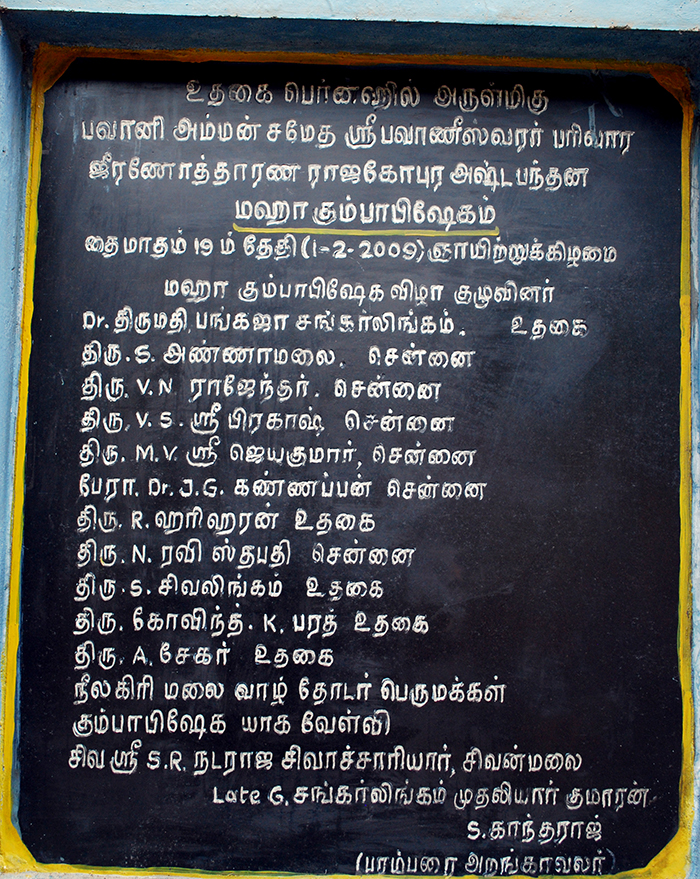 உதகை பெர்ன்ஹில் அருள்மிகு
பவானி அம்மன் சமேத ஸ்ரீ பவாணீஸ்வரர் பரிவார
ஜீரணோத்தாரண ராஜகோபுர அஷ்டபந்தன
மஹா கும்பாபிஷேகம்
தைமாதம் 19 ம் தேதி (1-2-2009) ஞாயிற்றுக்கிழமை
மஹா கும்பாபிஷேக விழா குழுவினர்
Dr. திருமதி பங்கஜா சங்கர்லிங்கம். உதகை
திரு. S. அண்ணாமலை. சென்னை
திரு. V.N ராஜேந்தர். சென்னை
திரு. V.S. ஸ்ரீ பிரகாஷ் சென்னை
திரு. M.V. ஸ்ரீ ஜெயகுமார், சென்னை
பேரா. Dr. J.G. கண்ணப்பன் சென்னை
திரு. R. ஹரிஹரன் உதகை
திரு. N. ரவி ஸ்தபதி சென்னை
திரு. S. சிவலிங்கம் உதகை
திரு. கோவிந்த். K. பரத் உதகை
திரு. A. சேகர் உதகை
நீலகிரி மலை வாழ் தோடர் பெருமக்கள்
கும்பாபிஷேக யாக வேள்வி
சிவ ஸ்ரீ S.R. நடராஜ சிவாச்சாரியார், சிவன்மலை
Late G. சங்கர்லிங்கம் முதலியார் குமாரன்
S. காந்தராஜ்
(பரம்பரை அறங்காவலர்)